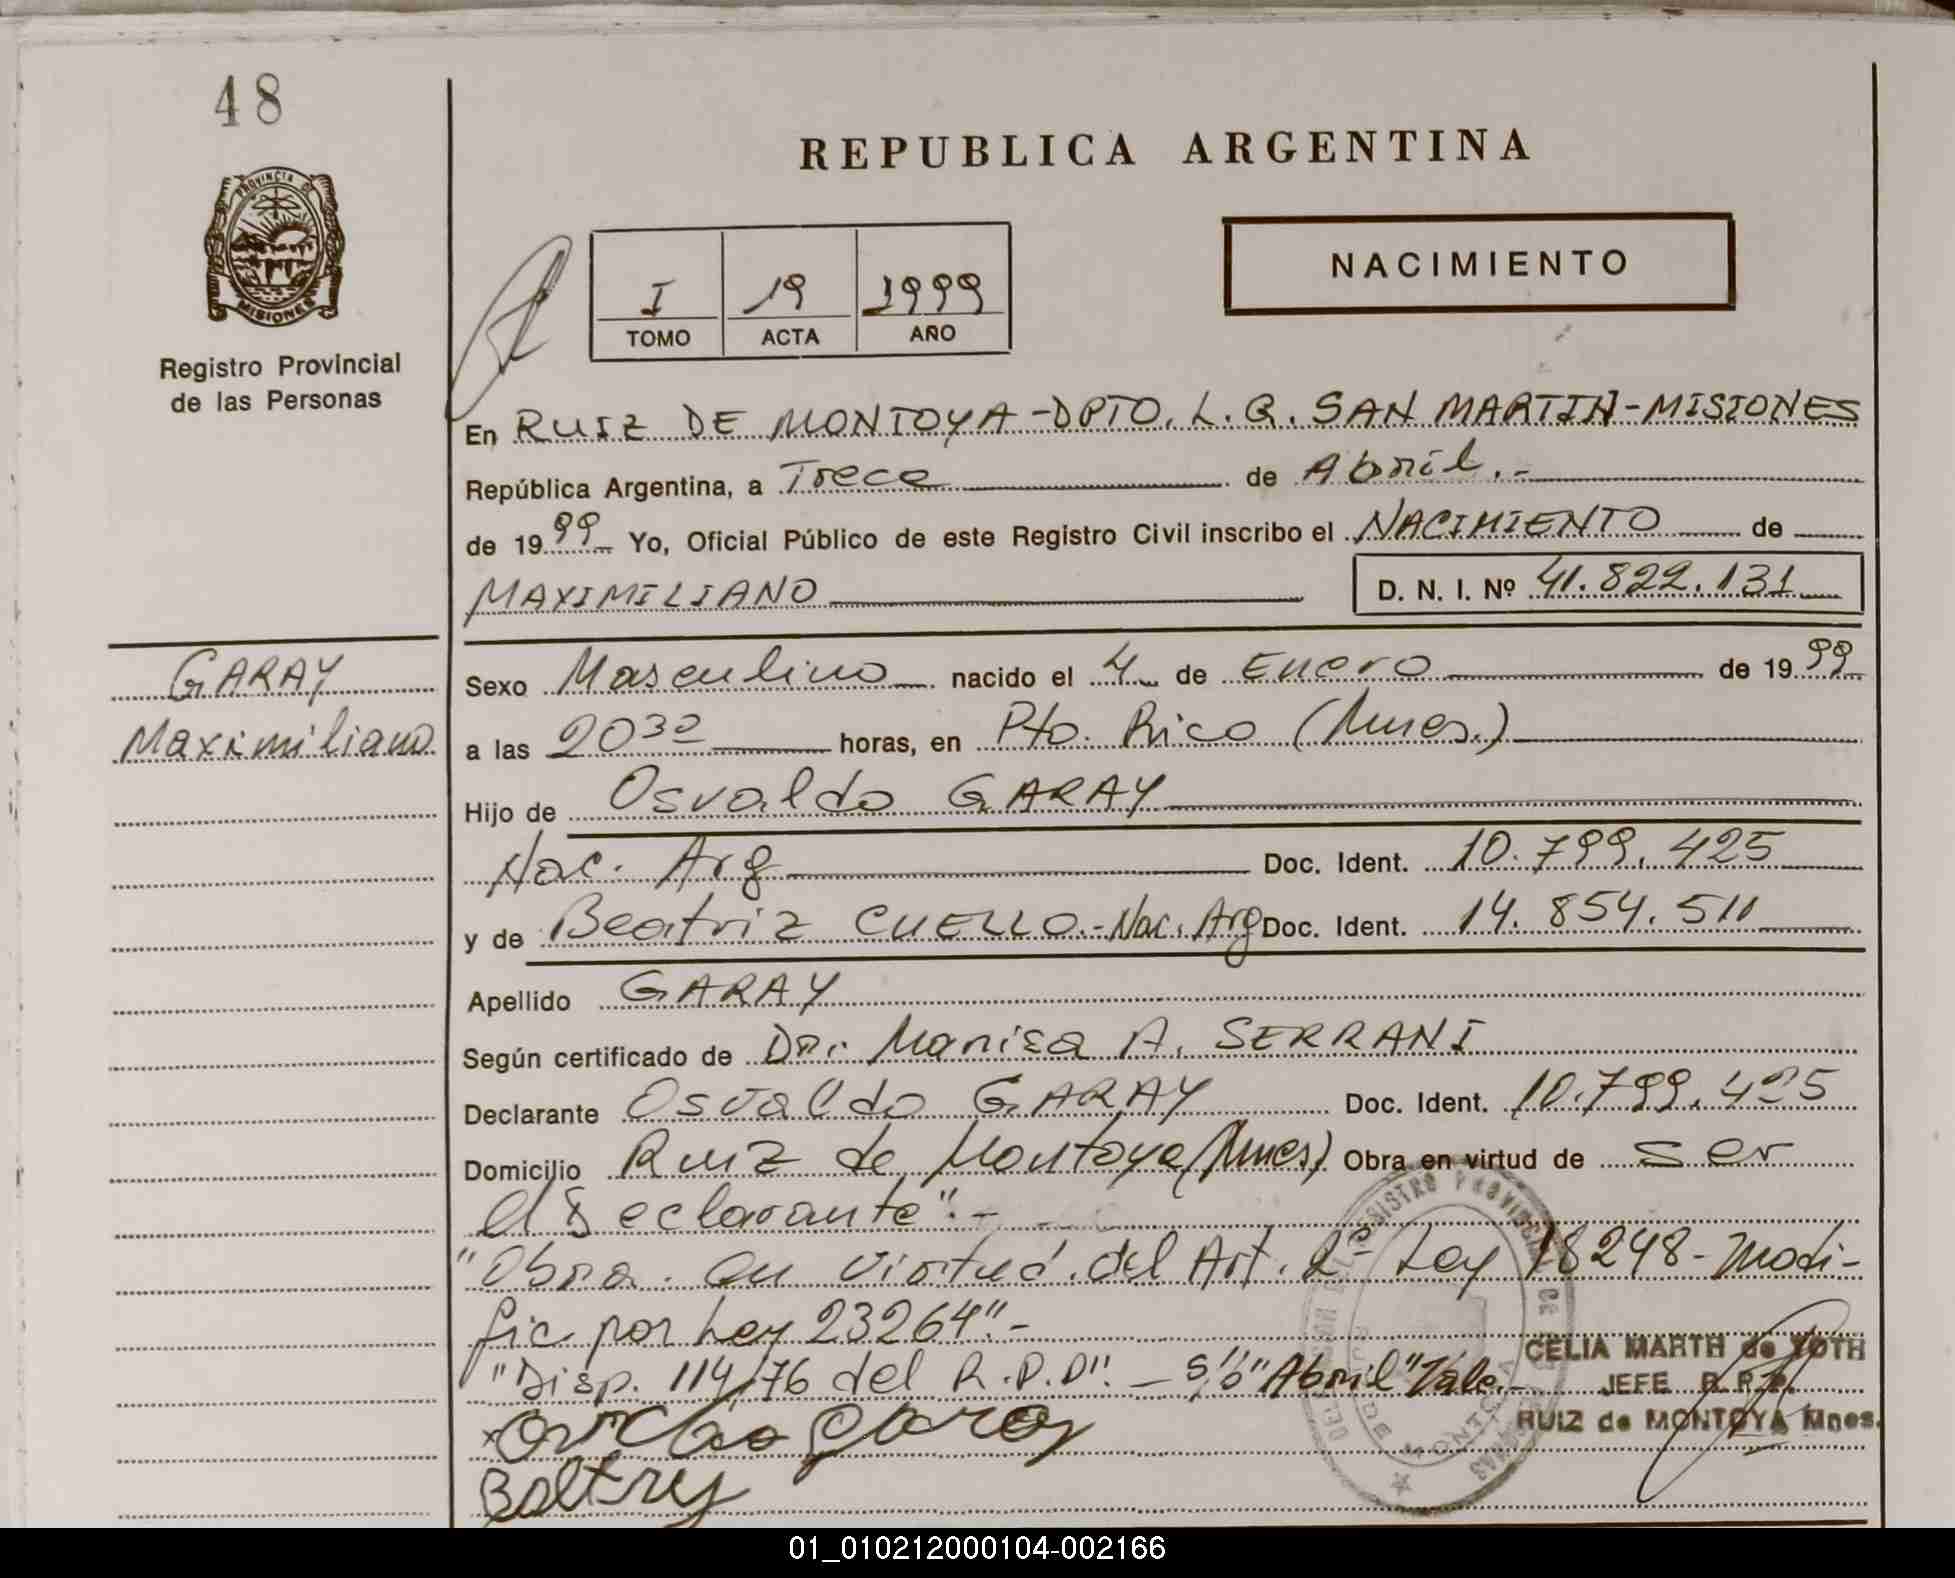 48
REPUBLICA ARGENTINA
PROVINCIA DE
MISIONES
Registro Provincial
de las Personas
I 19 1999
TOMO ACTA AÑO
NACIMIENTO
En RUIZ DE MONTOYA-DPTO. L. G. SAN MARTIN-MISIONES
República Argentina, a Trece de Abril.-
de 1999 Yo, Oficial Público de este Registro Civil inscribo el NACIMIENTO de
MAXIMILIANO D. N. I. Nº 41.822.131
GARAY
Maximiliano
Sexo Masculino nacido el 4 de Enero de 1999
a las 2030 horas, en Pto. Rico (Mnes.)
Hijo de Osvaldo GARAY
Nac. Arg Doc. Ident. 10.799.425
y de Beatriz CUELLO.-Nac. Arg Doc. Ident. 14.854.511
Apellido GARAY
Según certificado de Dra. Marisa A. SERRANI
Declarante Osvaldo GARAY Doc. Ident. 10.799.425
Domicilio Ruiz de Montoya (Mnes) Obra en virtud de ser
el declarante".-
"Obra en virtud del Art. 2º Ley 18248-Modi-
fic por Ley 23264".-
"Disp. 114/76 del R.P.P".- S/b "Abril" Vale.-
CELIA MARTH de ROTH
JEFE R.P.P.
RUIZ de MONTOYA Mnes.
01_010212000104-002166